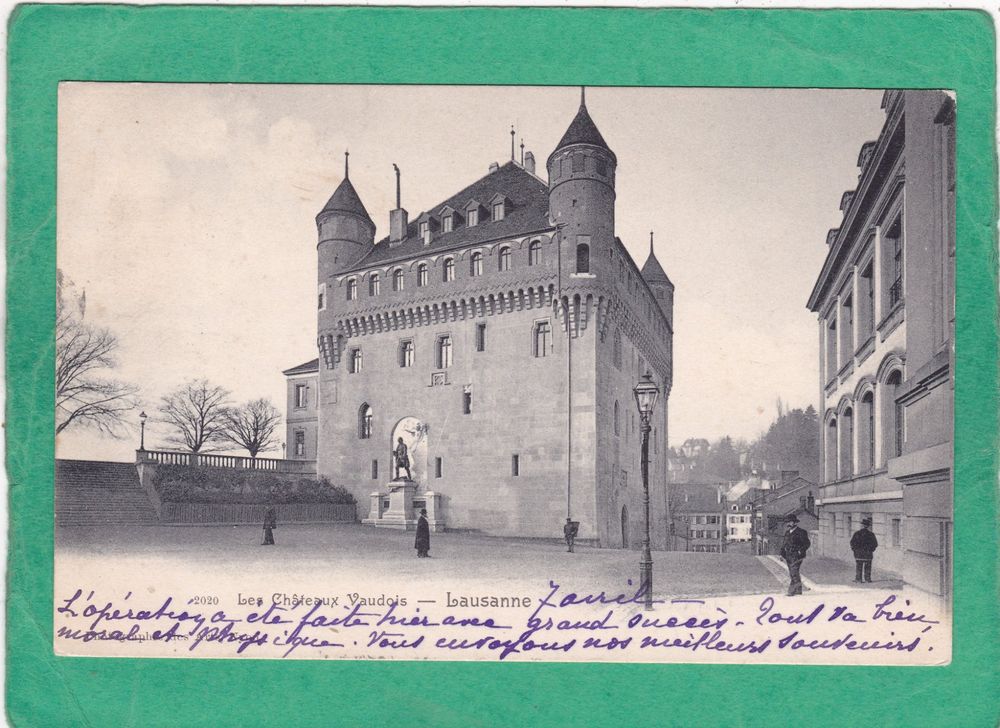 2020 Les Châteaux Vaudois — Lausanne 7 avril —
L'opération a été faite hier avec grand succès. Tout va bien,
moral et physique. Vous envoyons nos meilleurs souvenirs.